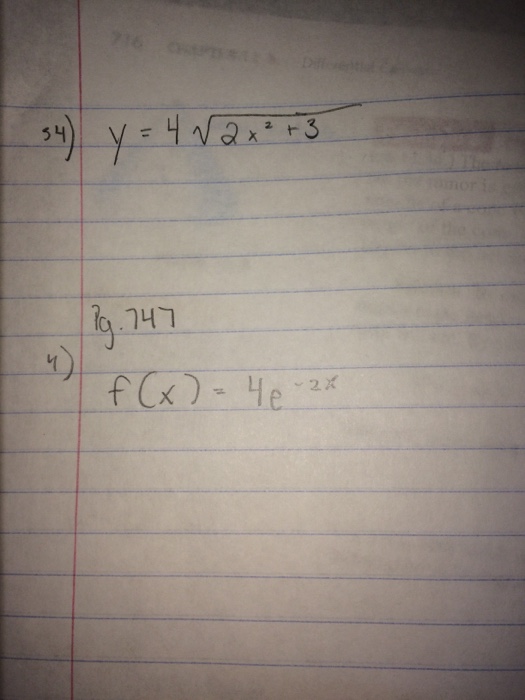 54) y = 4 √2x² + 3
Pg. 747
4)
f(x) = 4e⁻²ˣ